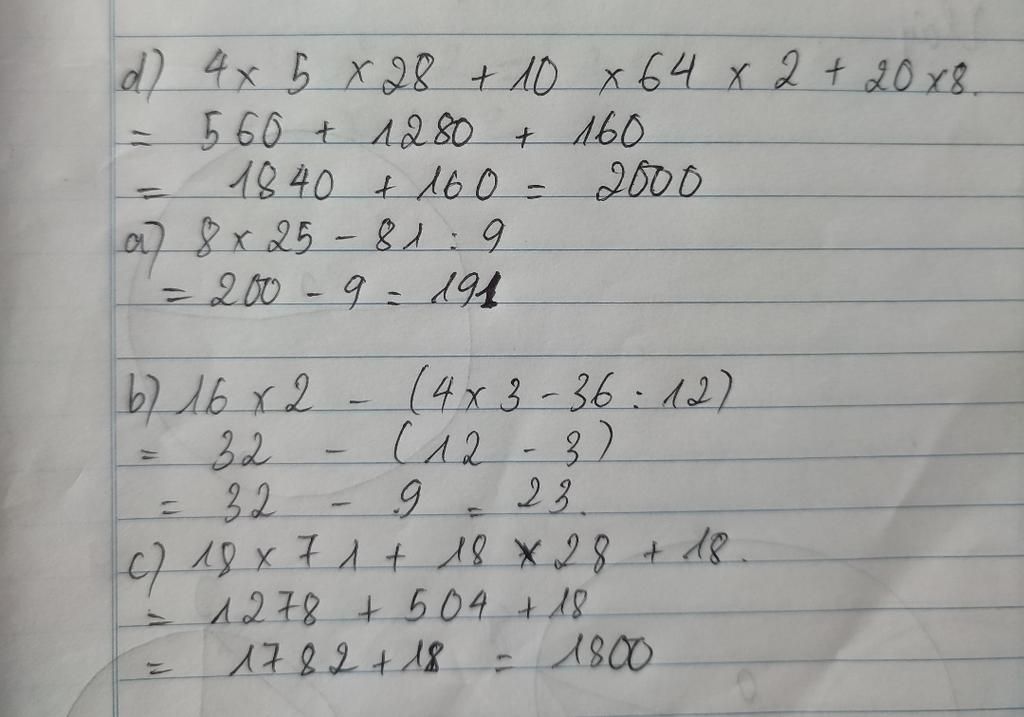 d) 4 x 5 x 28 + 10 x 64 x 2 + 20 x 8.
= 560 + 1280 + 160
= 1840 + 160 = 2000
a) 8 x 25 - 81 : 9
= 200 - 9 = 191
b) 16 x 2 - (4 x 3 - 36 : 12)
= 32 - (12 - 3)
= 32 - 9 = 23.
c) 18 x 71 + 18 x 28 + 18.
= 1278 + 504 + 18
= 1782 + 18 = 1800